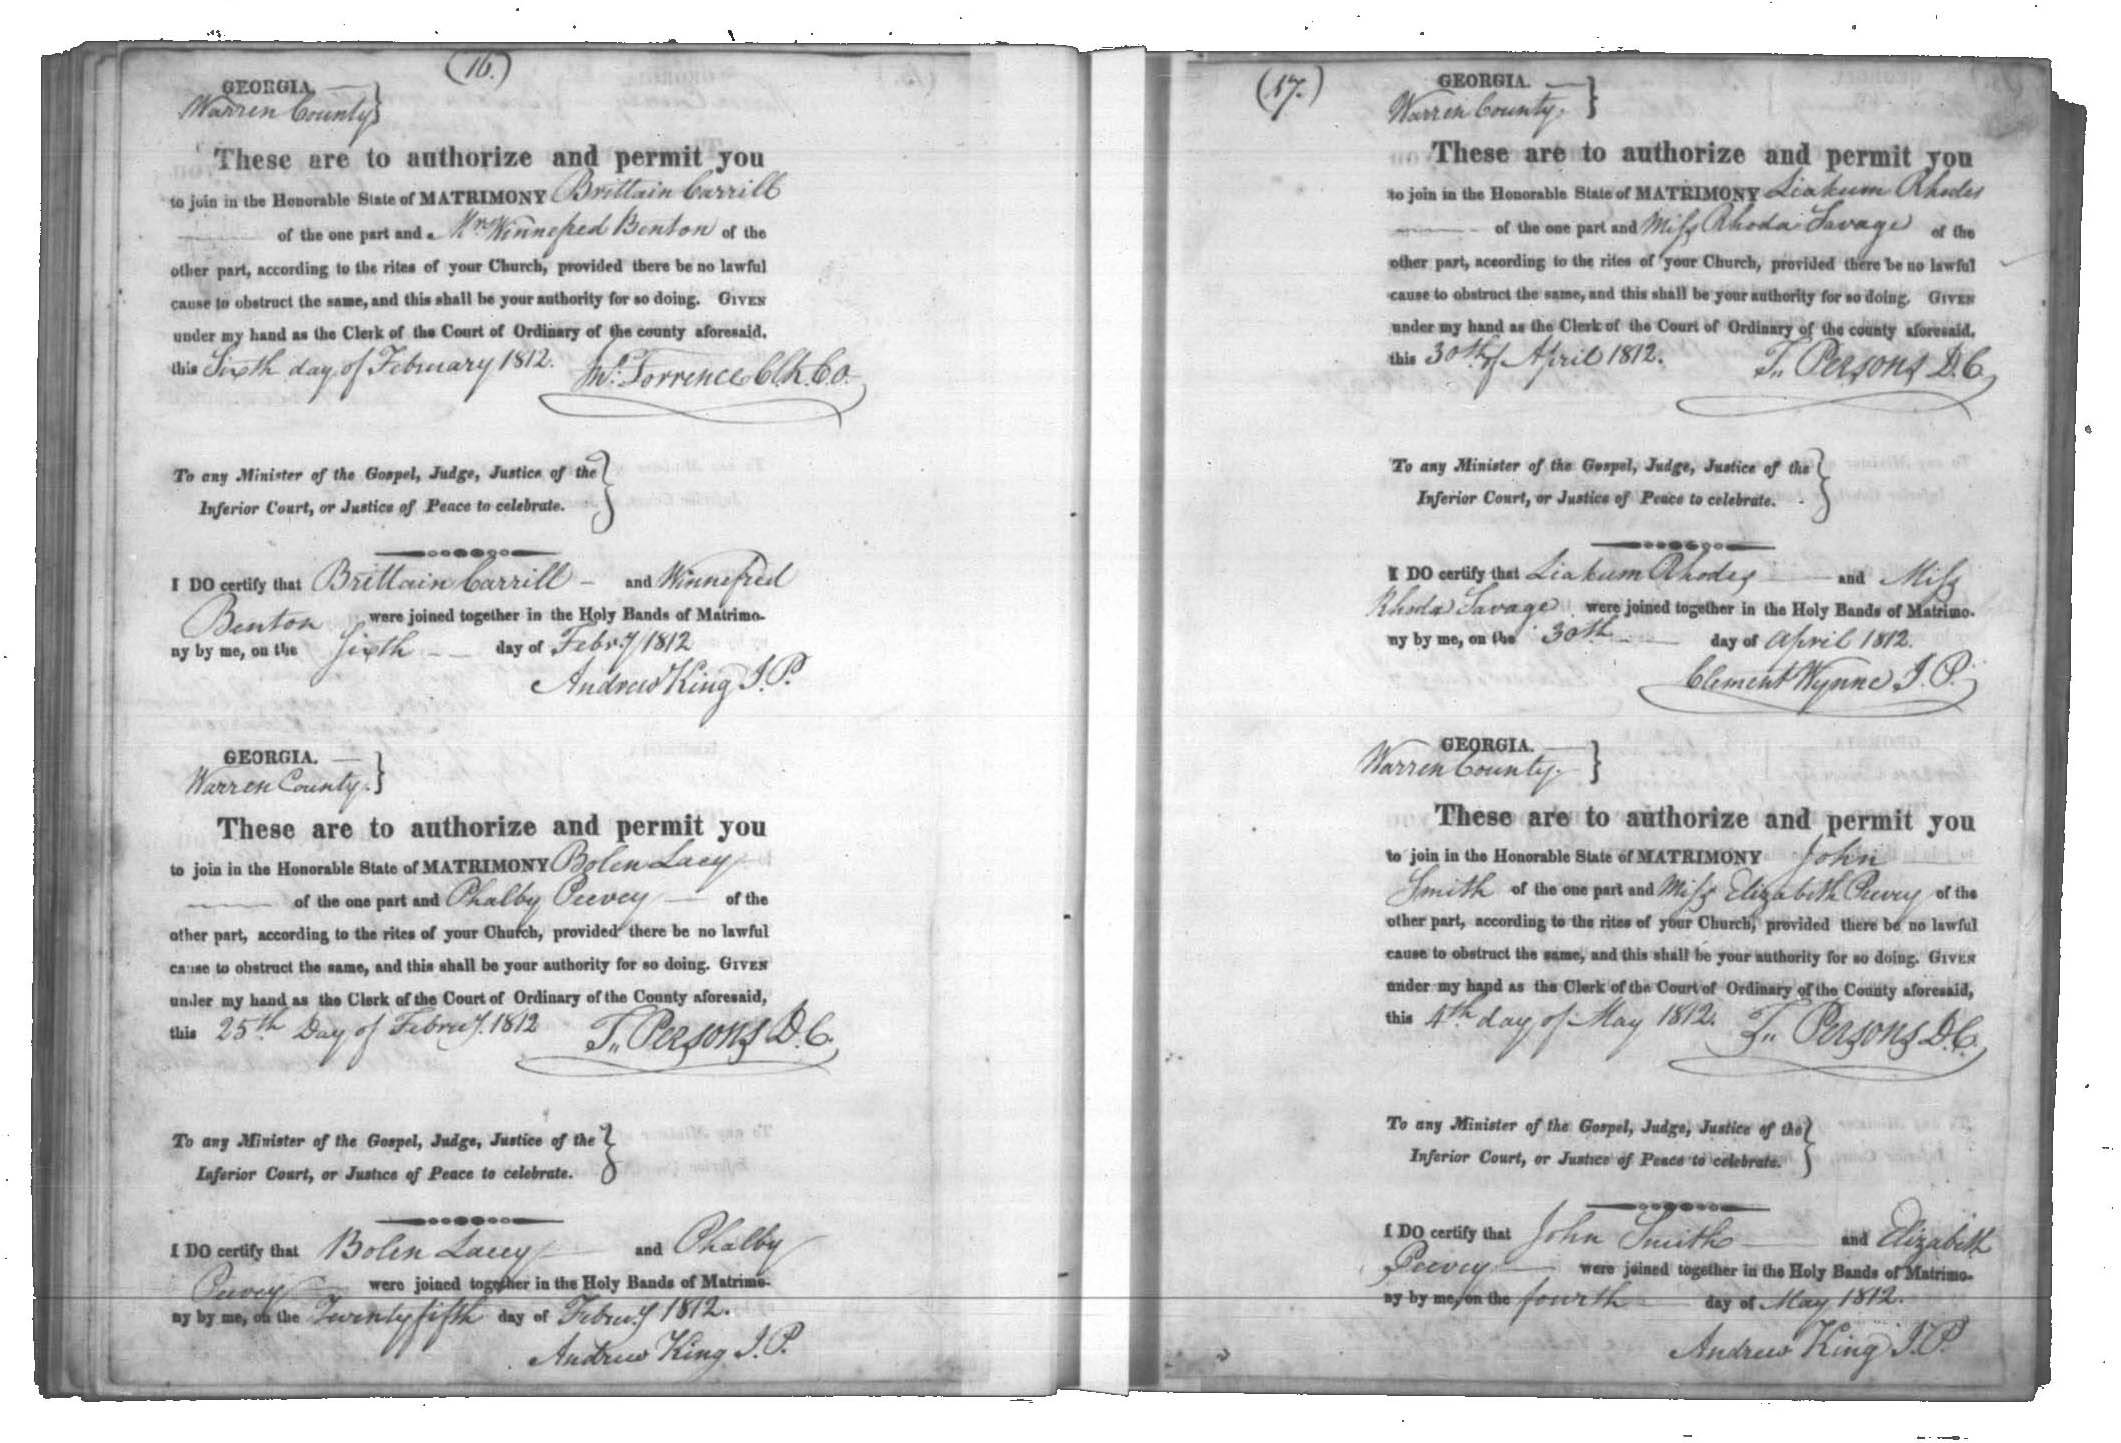 (16.)
GEORGIA.
Warren County
These are to authorize and permit you
to join in the Honorable State of MATRIMONY Brittain Carrill
of the one part and Mrs Winnefred Benton of the
other part, according to the rites of your Church, provided there be no lawful
cause to obstruct the same, and this shall be your authority for so doing. GIVEN
under my hand as the Clerk of the Court of Ordinary of the county aforesaid.
this Sixth day of February 1812. Torrence Clk. Co.
To any Minister of the Gospel, Judge, Justice of the
Inferior Court, or Justice of Peace to celebrate.
I DO certify that Brittain Carrill and Winnefred
Benton were joined together in the Holy Bands of Matrimo-
ny by me, on the Sixth day of Febry 1812
Andrew King J.P.
GEORGIA.
Warren County.
These are to authorize and permit you
to join in the Honorable State of MATRIMONY Bolen Lacy
of the one part and Phalby Peevey of the
other part, according to the rites of your Church, provided there be no lawful
cause to obstruct the same, and this shall be your authority for so doing. GIVEN
under my hand as the Clerk of the Court of Ordinary of the County aforesaid,
this 25th Day of Februy. 1812 T,, Persons D.C.
To any Minister of the Gospel, Judge, Justice of the
Inferior Court, or Justice of Peace to celebrate.
I DO certify that Bolen Lacey and Phalby
Peevey were joined together in the Holy Bands of Matrimo-
ny by me, on the Twenty fifth day of Februy 1812.
Andrew King J.P.
(17.)
GEORGIA.
Warren County.
These are to authorize and permit you
to join in the Honorable State of MATRIMONY Liakum Rhodes
of the one part and Miss Rhoda Savage of the
other part, according to the rites of your Church, provided there be no lawful
cause to obstruct the same, and this shall be your authority for so doing. GIVEN
under my hand as the Clerk of the Court of Ordinary of the county aforesaid.
this 30th of April 1812. T,, Persons D.C.
To any Minister of the Gospel, Judge, Justice of the
Inferior Court, or Justice of Peace to celebrate.
I DO certify that Liakum Rhodes and Miss
Rhoda Savage were joined together in the Holy Bands of Matrimo-
ny by me, on the 30th day of April 1812.
Clement Wynne J.P.
GEORGIA.
Warren County.
These are to authorize and permit you
to join in the Honorable State of MATRIMONY John
Smith of the one part and Miss Elizabeth Peevey of the
other part, according to the rites of your Church, provided there be no lawful
cause to obstruct the same, and this shall be your authority for so doing. GIVEN
under my hand as the Clerk of the Court of Ordinary of the County aforesaid,
this 4th day of May 1812. T,, Persons D.C.
To any Minister of the Gospel, Judge, Justice of the
Inferior Court, or Justice of Peace to celebrate.
I DO certify that John Smith and Elizabeth
Peevey were joined together in the Holy Bands of Matrimo-
ny by me, on the fourth day of May 1812.
Andrew King J.P.